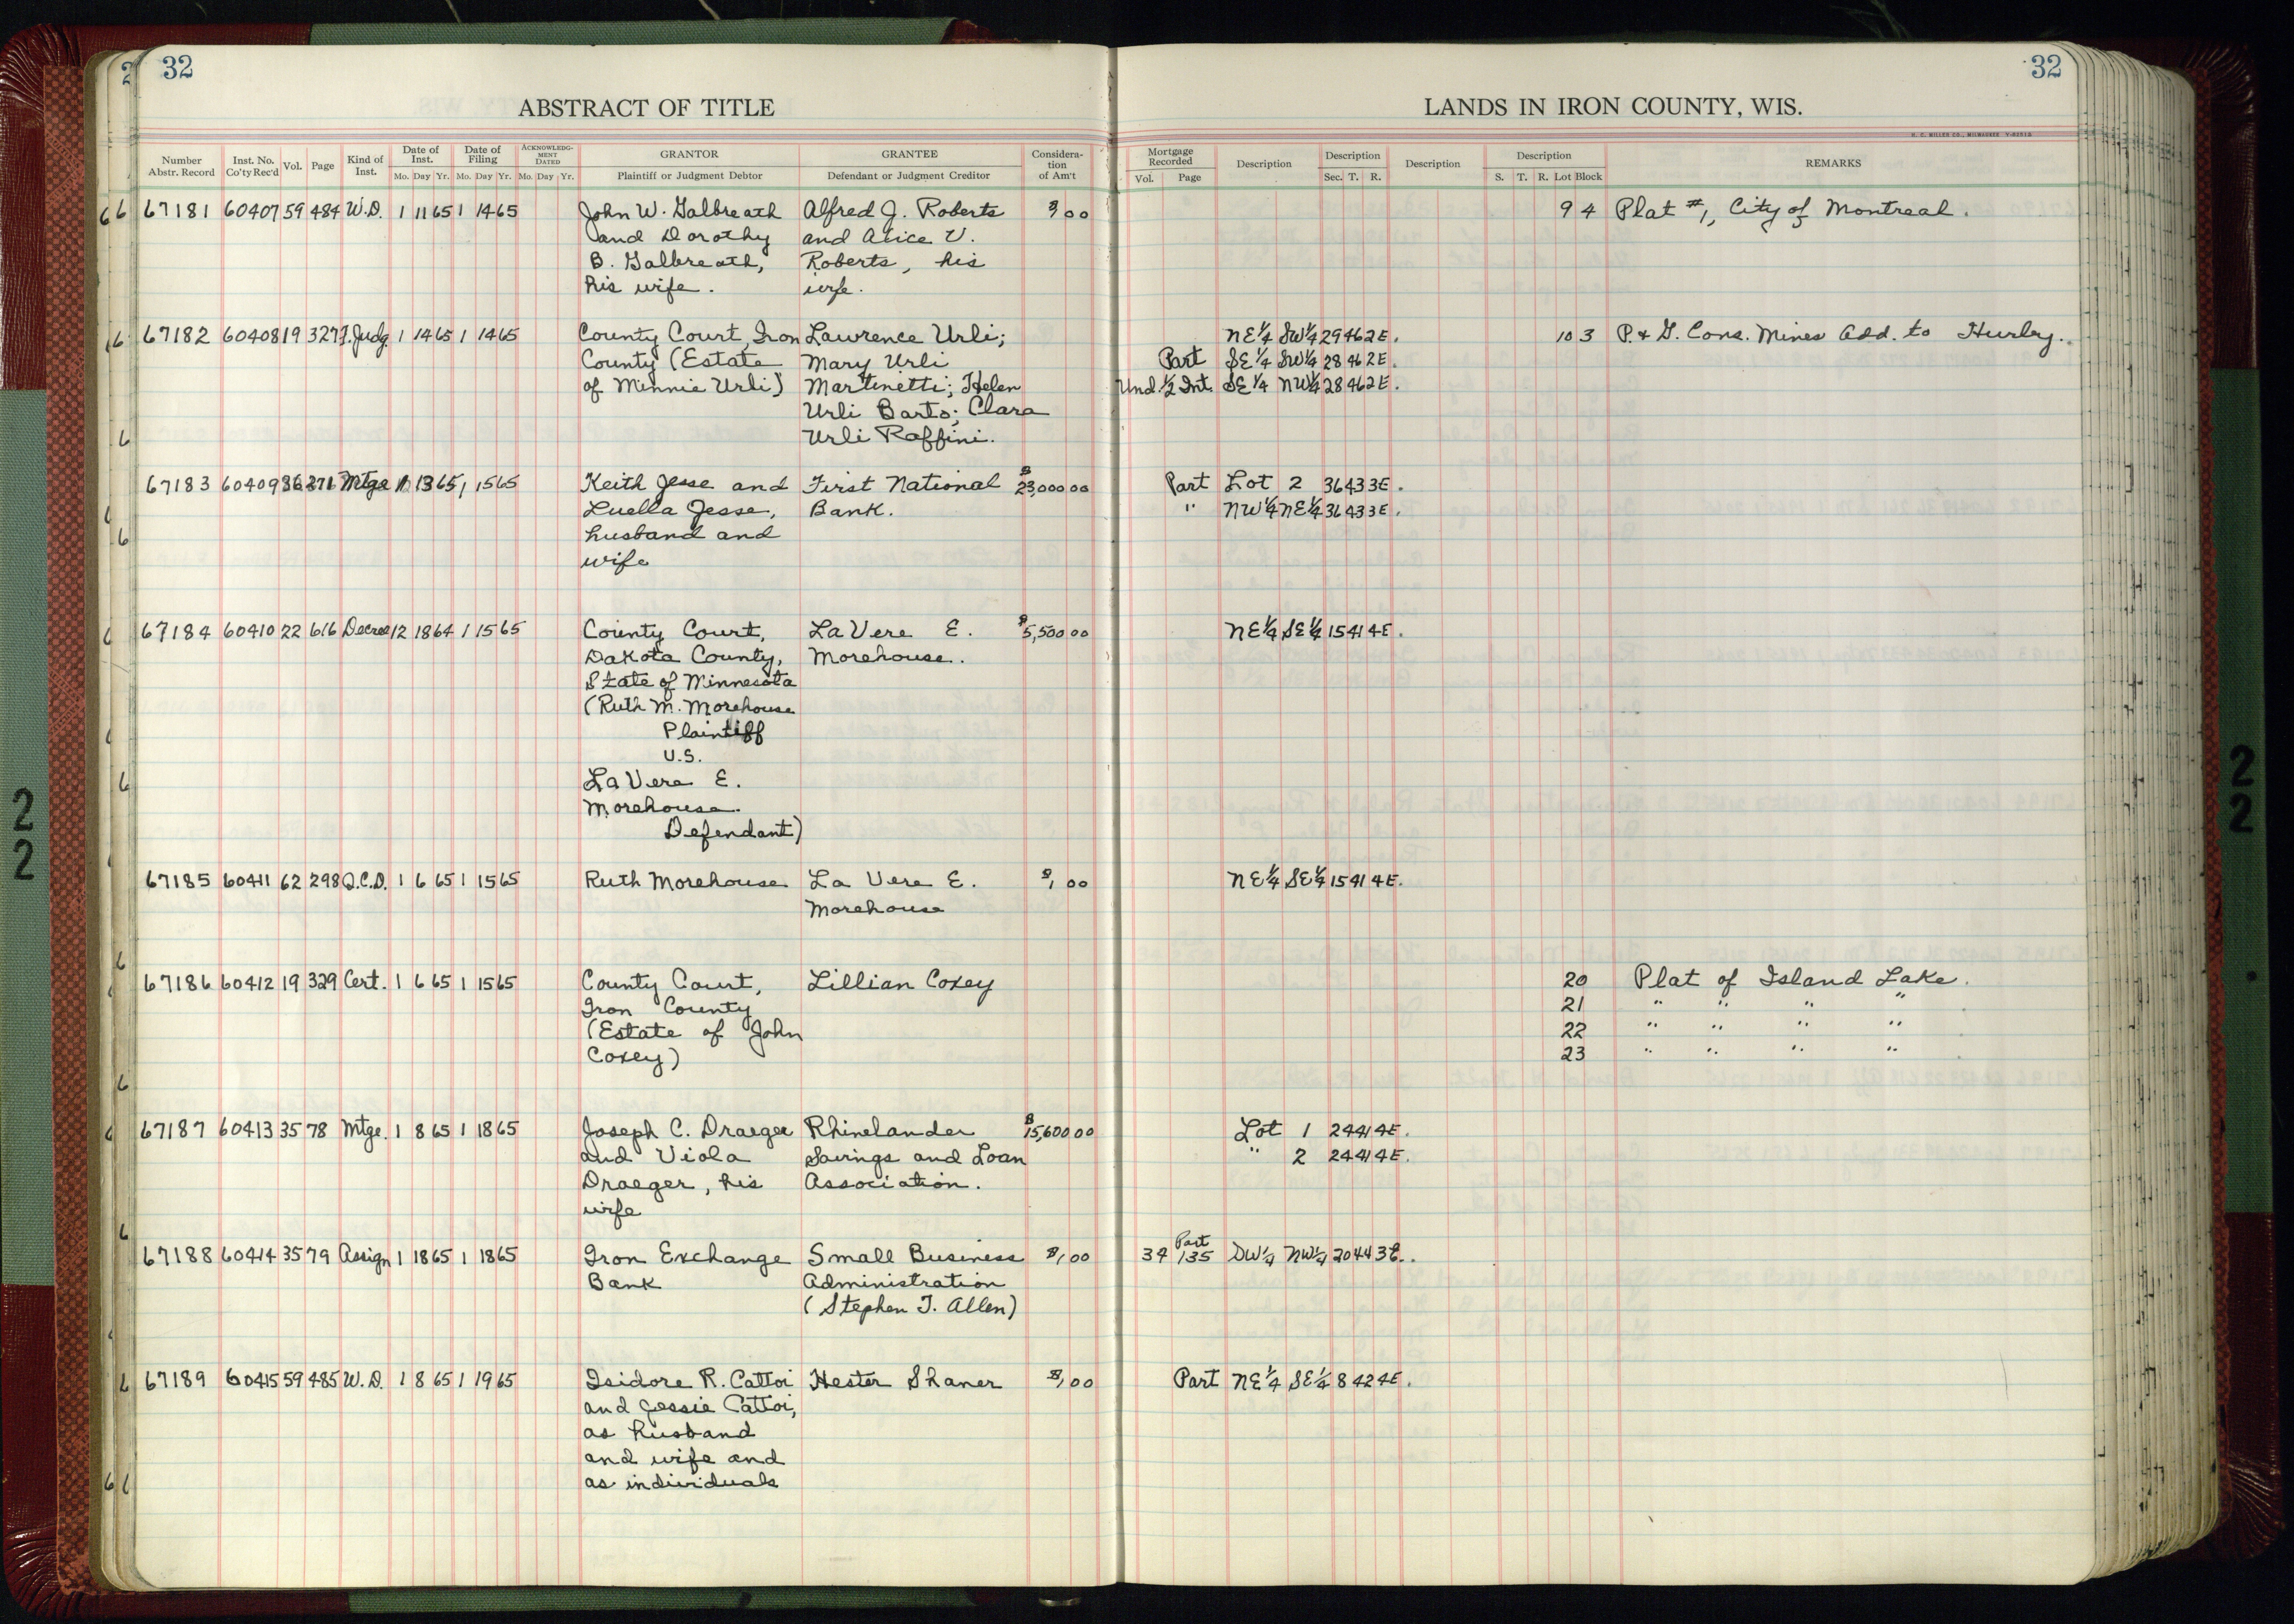 32
32
ABSTRACT OF TITLE
LANDS IN IRON COUNTY, WIS.
H. C. MILLER CO., MILWAUKEE
Number Abstr. Record Inst. No. Co'ty Rec'd Vol. Page Kind of Inst. Date of Inst. Mo. Day Yr. Date of Filing Mo. Day Yr. ACKNOWLEDG-MENT DATED Mo. Day Yr. GRANTOR Plaintiff or Judgment Debtor GRANTEE Defendant or Judgment Creditor Considera-tion of Am't
Mortgage Recorded Vol. Page Description Description Sec. T. R. Description Description S. T. R. Lot Block REMARKS
67181 60407 59 484 W.D. 1 11 65 1 14 65 John W. Galbreath Alfred J. Roberts 00 9 4 Plat #1, City of Montreal.
and Dorothy and Alice V.
B. Galbreath, Roberts, his
his wife. wife.
67182 60408 19 327 F. Judg. 1 14 65 1 14 65 County Court, Iron Lawrence Urli; NE¼ SW¼ 29 46 2E. 10 3 P. & G. Cons. Mines Add. to Hurley.
County (Estate Mary Urli Part SE¼ SW¼ 28 46 2E.
of Minnie Urli) Martinetti; Helen Und. ½ Int. SE¼ NW¼ 28 46 2E.
Urli Barto; Clara
Urli Raffini.
67183 60409 36 271 Mtge 1 13 65 1 15 65 Keith Jesse and First National $23,000 00 Part Lot 2 36 43 3E.
Luella Jesse, Bank. " NW¼ NE¼ 36 43 3E.
husband and
wife
67184 60410 22 616 Decree 12 18 64 1 15 65 County Court, LaVere E. $5,500 00 NE¼ SE¼ 15 41 4E.
Dakota County, Morehouse.
State of Minnesota
(Ruth M. Morehouse
Plaintiff
V.S.
LaVere E.
Morehouse
Defendant)
67185 60411 62 298 Q.C.D. 1 6 65 1 15 65 Ruth Morehouse La Vere E. $1 00 NE¼ SE¼ 15 41 4E.
Morehouse
67186 60412 19 329 Cert. 1 6 65 1 15 65 County Court, Lillian Coxey 20 Plat of Island Lake.
Iron County 21 " " " "
(Estate of John 22 " " " "
Coxey) 23 " " " "
67187 60413 35 78 Mtge. 1 8 65 1 18 65 Joseph C. Draeger Rhinelander $15,600 00 Lot 1 24 41 4E.
and Viola Savings and Loan " 2 24 41 4E.
Draeger, his Association.
wife
67188 60414 35 79 Assign 1 18 65 1 18 65 Iron Exchange Small Business $1 00 34 Part 135 SW¼ NW¼ 20 44 3E.
Bank Administration
(Stephen T. Allen)
67189 60415 59 485 W.D. 1 8 65 1 19 65 Isidore R. Cattoi Hester Shaner $1 00 Part NE¼ SE¼ 8 42 4E.
and Jessie Cattoi,
as husband
and wife and
as individuals
22
22